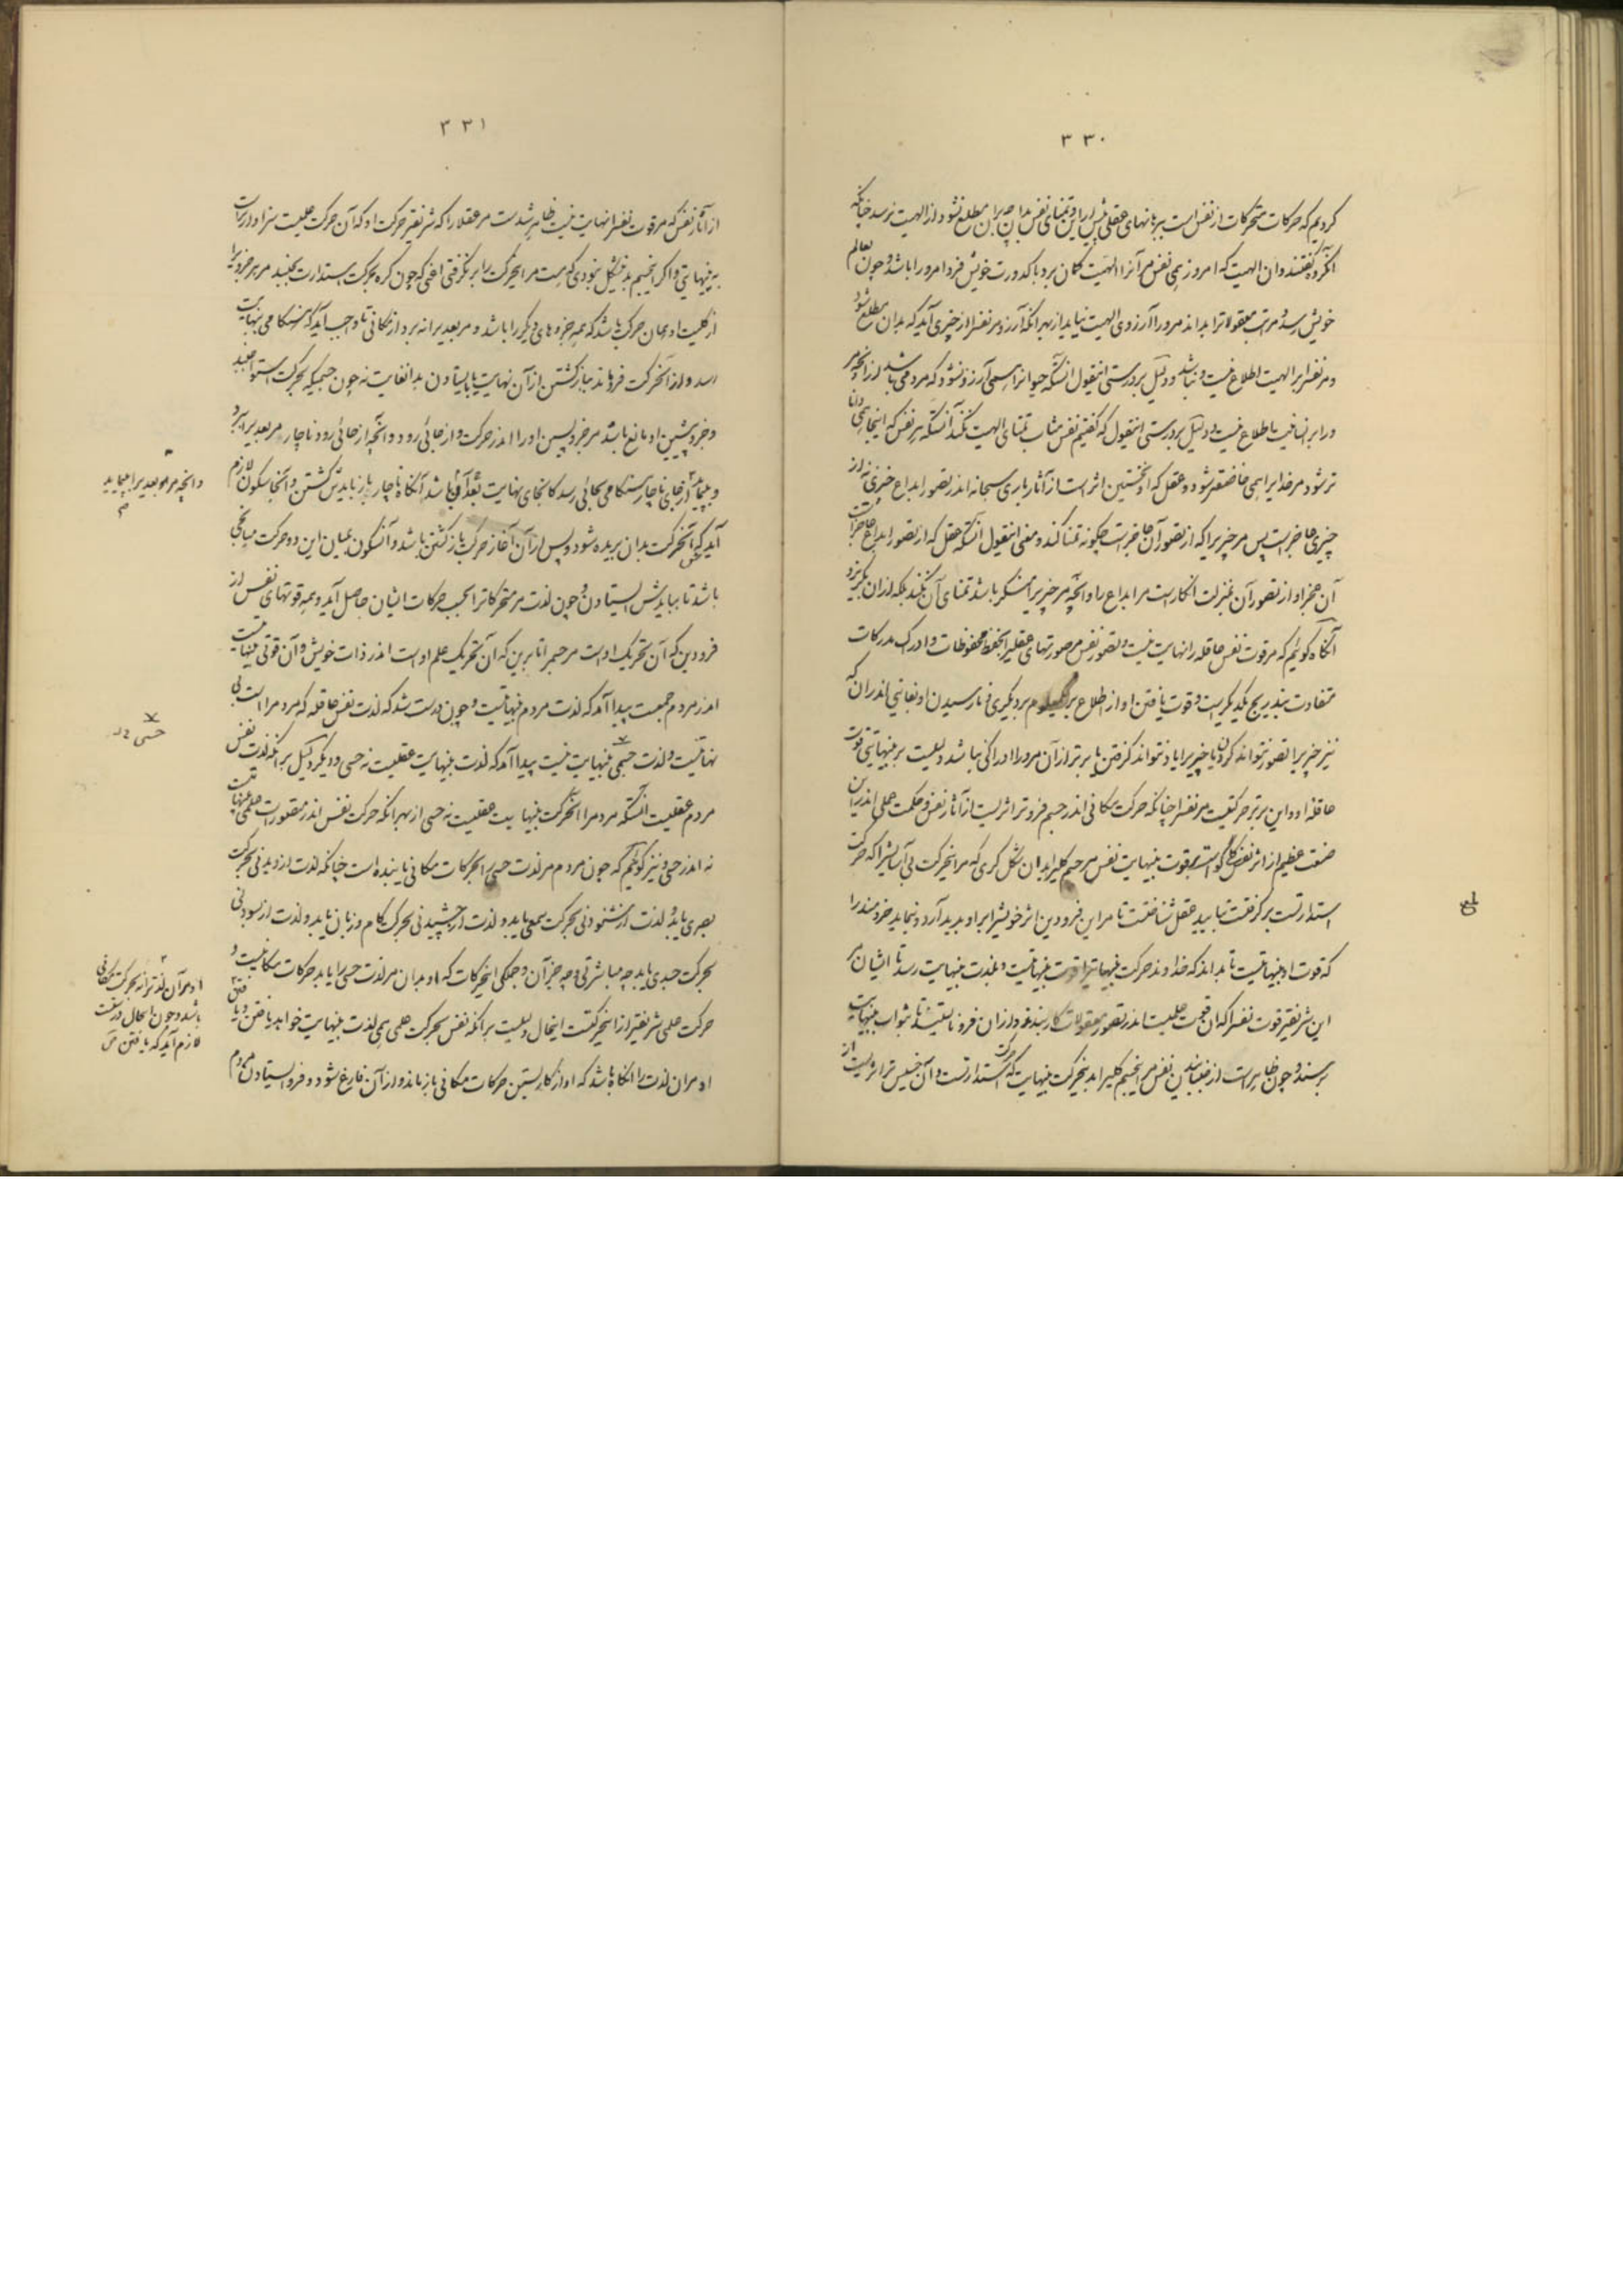 ۳۳۰
کردیم که حرکات متحرکات از نفس است ببرهانهای عقلی پیش ازین و تمنای نفس بدان چیز بران مطلع نشود از الهیت نرسد چنانکه
انگروه گفتند و آن الهیت که امروز همی نفس مر آنرا الهیت گمان برد با کدورت خویش فردا مرورا باشد و چون بعالم
خویش رسد و مرتب معقولاترا بداند مرورا آرزوی الهیت نیاید از بهر آنکه آرزو مر نفس را از چیزی آید که بدان مطلع شود
و مر نفس را بر الهیت اطلاع نیست و نباشد و دلیل بر درستی این قول آنستکه حیوانرا همی آرزو نشود که مردمی باشد از آنچه مر
ورا بر انسانیت اطلاع نیست و دلیل بر درستی این قول که گفتیم نفس مثاب تمنای الهیت نکند آنستکه هر نفس که اینجا همی داناتر
شود مر خدایرا همی خاضعتر شود و عقل که او نخستین اثر است از آثار باری سبحانه اندر تصور ابداع چیزی نه از
چیزی عاجز است پس مر چیزیرا که از تصور آن عاجز است چگونه تمنا کند و معنی این قول آنستکه عقل که از تصور ابداع عاجز است
آن عجز او از تصور آن بمنزلت انکار است مر ابداع را و آنچه مر چیزیرا منکر باشد تمنای آن نکند بلکه از ان بگریزد
آنگاه گوئیم که مر قوت نفس عاقله را نهایت نیست و تصور نفس مر صورتهای عقلیرا بحفظ محفوظات و ادراک مدرکات
متفاوت بتدریج یکدیگر است و قوت یافتن او از اطلاع بر معلوم بر دیگری نارسیدن او بغایتی اندران که
نیز چیزیرا تصور نتواند کردن یا چیزیرا یاد نتواند گرفتن یا برتر از آن مرورا ادراکی نباشد دلیلست بر بینهایتی قوت
عاقله او و این برتر حرکتیست مر نفس را چنانکه حرکت مکانی اندر جسم فروتر اثریست از آثار نفس و حکمت علمی اندرین
صنعت عظیم از اثر نفس کلی بقوت بینهایت نفس مر جسم کلیرا بدان شکل کری که مر این حرکت بی آسایش را که حرکت
استدارتست بر گرفتست بتایید عقل شناختست تا مر این فرودین اثر خویش را بر او پدید آرد و بنماید خردمند را
که قوت او بینهایتست تا بداند که خداوند حرکت بینهایترا قوت بینهایتست و بلذت بینهایت رسد تا ایشان مر
این شریفتر قوت نفس را که آن قوت علمیست اندر تصور معقولات کار بندند و از ان فرو نایستند تا بثواب بینهایت
برسند و چون ظاهر است از جنبانیدن نفس مر این جسم کلیرا بدین حرکت بینهایت که حرکت استدارتست و آن خسیس تر اثریست از
۳۳۱
از آثار نفس که مر قوت نفس را نهایت نیست ظاهر شدست مر عقلا را که شریفتر حرکت او که آن حرکت علمیست سزاوارتر است
به بینهایتی و اگر این جسم بدین شکل نبودی که هست مر این حرکت را بر نگرفتی اعنی که چون کره بحرکت استدارت بجنبد مر هر جزویرا
از کلیت او همان حرکت باشد که همه جزوهای دیگر را باشد و مر بعدیرا نه برد از مکانی تا واجب آید که هنگامی بنهایت
رسد و از آن حرکت فرو ماند بباز گشتن از آن نهایت یا بایستادن بدان غایت نه چون جسمیکه بحرکت استوا جنبد
و جزو پیشین او مانع باشد مر جزو پسین او را اندر حرکت و از جائی رود و آنچه از جائی رود ناچار مر بعدیرا برد
و بپیماید از جای ناچار هنگامی بجائی رسد کانجای نهایت بعد آن باشد آنگاه ناچار باز بایدش گشتن و آنجا سکون لازم
آید که آن حرکت بدان بریده شود و پس از آن آغاز حرکت باز گشتن باشد و آن سکون بمیان این دو حرکت میانجی
باشد تا بیایدش ایستادن و چون لذت مر متحرکاترا بحسب حرکات ایشان حاصل آید و همه قوتهای نفس از
فرودین که آن تحریک اوست مر جسم را تا برین که آن تحریک علم اوست اندر ذات خویش و آن قوتی بینهایتست
اندر مردم جمعست پیدا آمد که لذت مردم بینهایتست و چون درست شد که لذت نفس عاقله که مردم راست بی
نهایتست و لذت جسمی بینهایت نیست پیدا آمد که لذت بینهایت عقلیست نه حسی و دیگر دلیل بر آنکه لذت نفس
مردم عقلیست آنستکه مردم را این حرکت بینهایت عقلیست نه حسی از بهر آنکه حرکت نفس اندر متصورات علمی بینهایتست
نه اندر حسی و نیز گوئیم که چون مردم مر لذت حسی را بحرکات مکانی یابنده است چنانکه لذت از دیدنی بحرکت
بصری یابد و لذت از شنودنی بحرکت سمعی یابد و لذت از چشیدنی بحرکت کام و زبان یابد و لذت از بسودنی
بحرکت جسدی یابد چه مباشرتی و چه جز آن و جملگی این حرکات که او بدان مر لذت حسی را یابد حرکات مکانیست و
حرکت علمی شریفتر از این حرکتست این حال دلیلست بر آنکه نفس بحرکت علمی همی لذت بینهایت خواهد یافتن و یافتن
او مر ان لذت را آنگاه باشد که او از کار بستن حرکات مکانی باز ماند و از آن فارغ شود و فرو ایستادن مردم
و آنچه مر بعدیرا بپیماید
حسی
او مر آن لذتراند بحرکت مکانی
باشد و چون این حال درست
لازم آید که یافتن